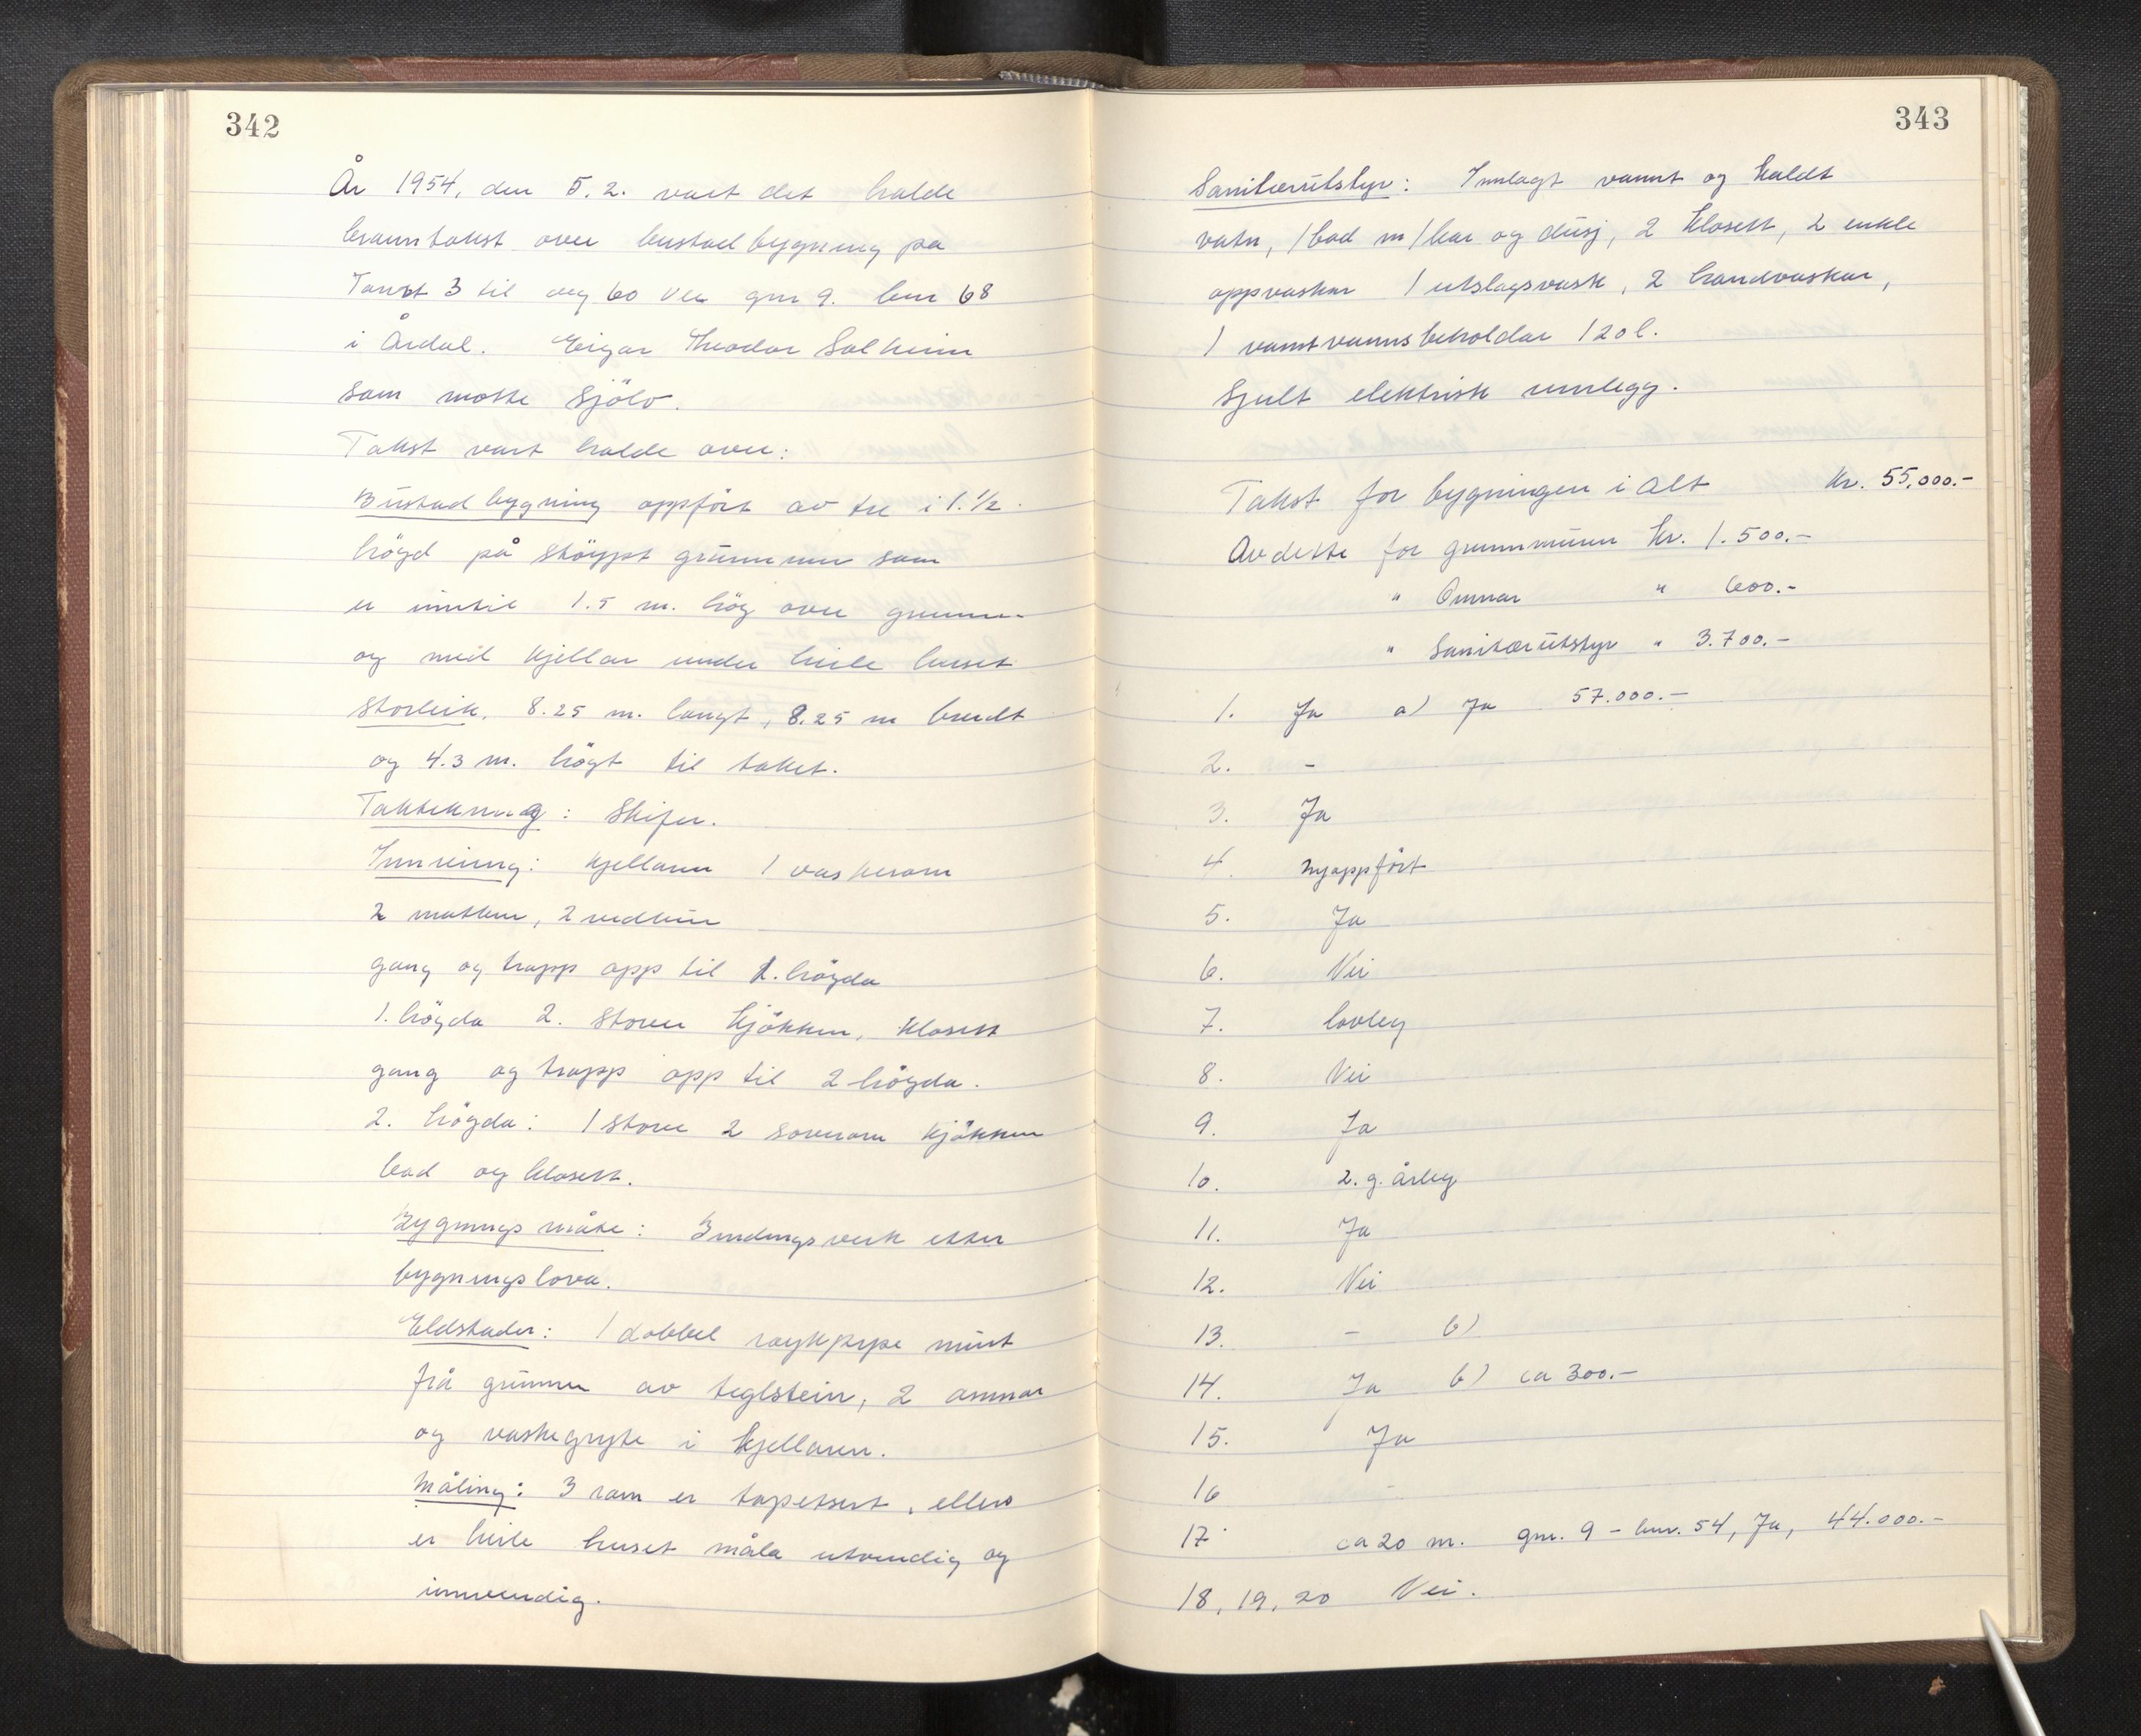 342
År 1954, den 5.2. vart det halde
branntakst over bustadbygning på
Tomt 3 til og 60 Ve gnr 9. bnr 68
i Årdal. Eigar Theodor Solheim
som møtte sjölv.
Takst vart halde over:
Bustadbygning oppfört av tre i 1.1/2
högd på stöypt grunnmur som
er inntil 1.5 m. hög over grunnen
og med kjellar under heile huset
Storleik. 8.25 m. langt, 8.25 m breidt
og 4.3 m. högt til taket.
Taktekning: Skifer.
Innreiing: Kjellaren 1 vaskerom
2 matbur, 2 vedbur
gang og trapp opp til 1. högda
1. högda 2. stover kjökken, klosett
gang og trapp opp til 2 högda.
2. högda: 1 stove 2 soverom kjökken
bad og klosett.
Bygningsmåte: Bindingsverk etter
bygningslova.
Eldstader: 1 dobbel røykpipe murt
frå grunnen av teglstein, 2 omnar
og vaskegryte i kjellaren.
Måling: 3 rom er tapetsert, ellers
er heile huset måla utvendig og
innvendig.
343
Sanitærutstyr: Innlagt varmt og kaldt
vatn, 1 bad m/kar og dusj, 2 klosett, 2 enkle
oppvaskar 1 utslagsvask, 2 handvaskar,
1 varmtvannsbeholdar 120 l.
Skjult elektrisk innlegg.
Takst for bygningen i alt Kr. 55,000.-
Av dette for grunnmuren Kr. 1.500.-
" Omnar " 600.-
" Sanitærutstyr " 3.700.-
1. Ja a) Ja 57.000.-
2. -
3. Ja
4. nyoppfört
5. Ja
6. Nei
7. lovleg
8. Nei
9. Ja
10. 2. g. årleg
11. Ja
12. Nei
13. - b)
14. Ja b) ca 300.-
15. Ja
16 -
17. ca 20 m. gnr. 9 - bnr. 54, Ja, 44.000.-
18, 19, 20 Nei.